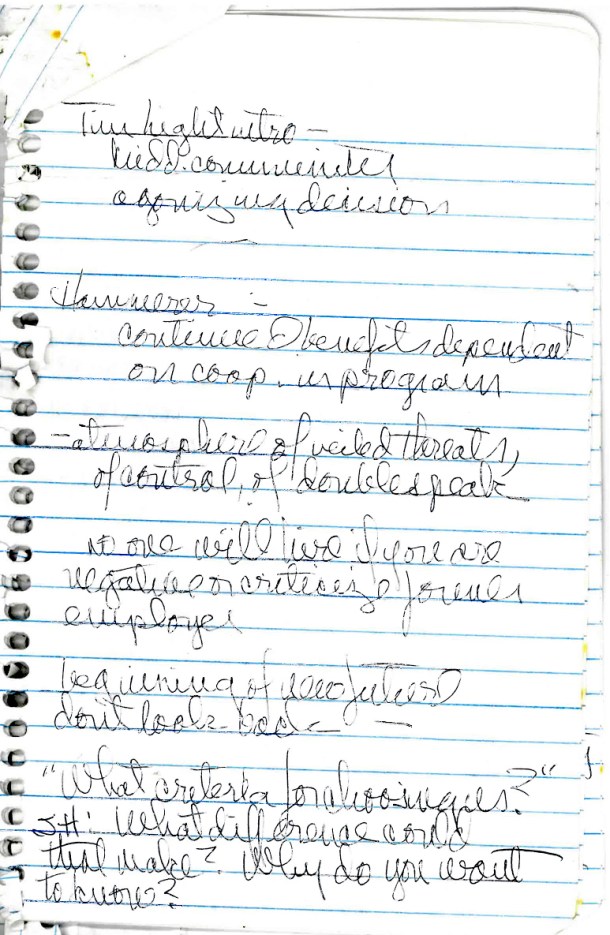 Tim hight intro –
agonizing decision
Hammerer –
continued benefits dependent
on coop. in program
– atmosphere of veiled threats,
of control, of doublespeak
no one will hire if you are
negative or criticize former
employer
beginning of new future
don't look back –
"What criteria for choosing us?"
JH: What difference could
that make? Why do you want
to know?